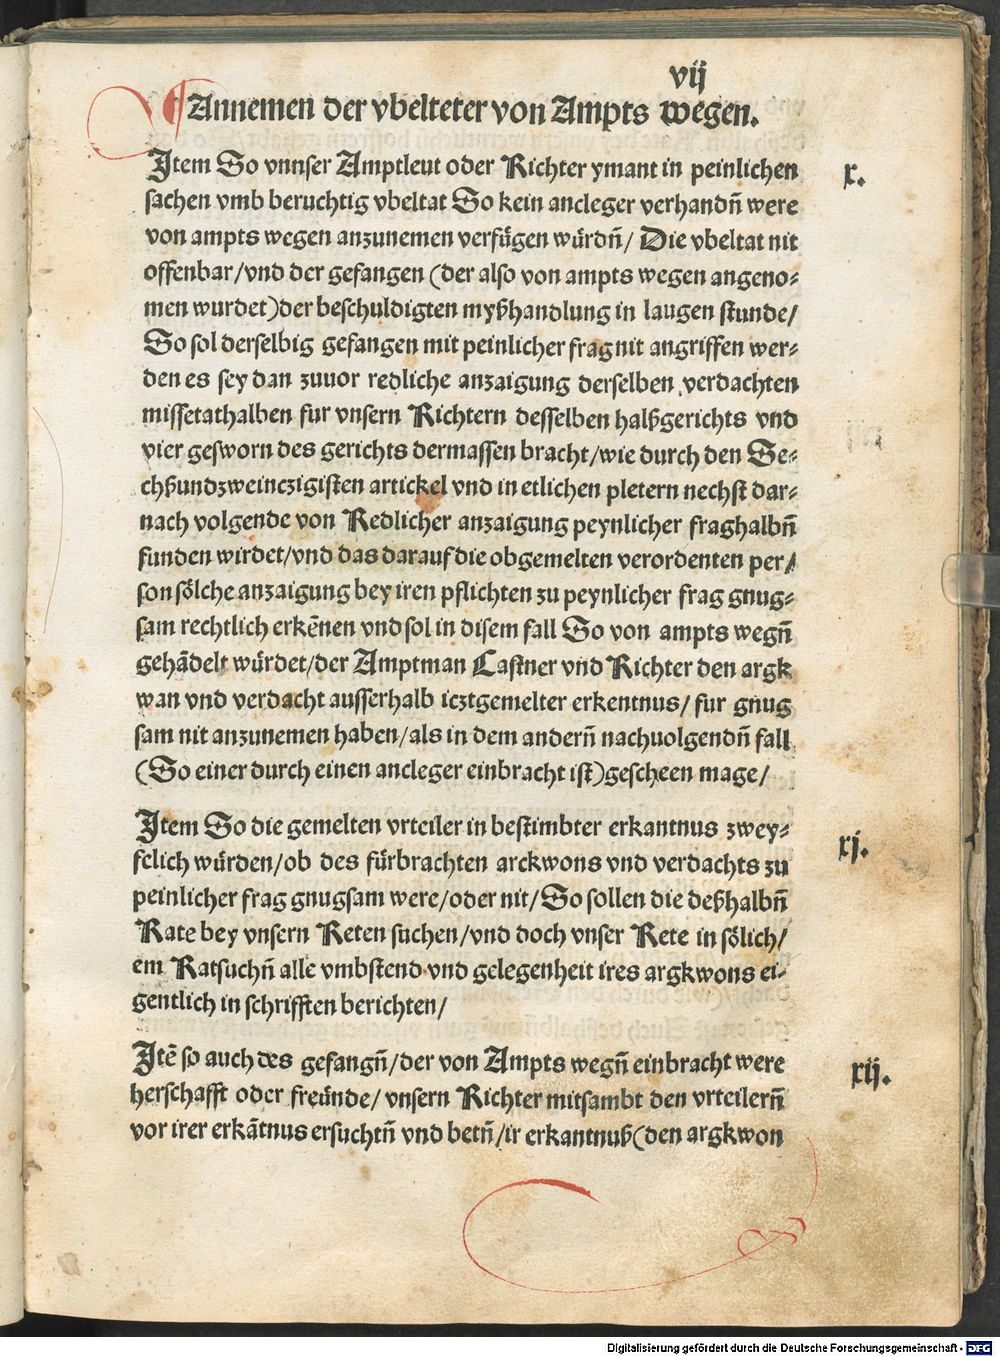 vij
¶ Annemen der vbelteter von Ampts wegen.
Jtem So vnnser Amptleut oder Richter ymant in peinlichen
x.
sachen vmb beruchtig vbeltat So kein ancleger verhandn̄ were
von ampts wegen anzunemen verfu̎gen wu̎rdn̄/ Die vbeltat nit
offenbar/vnd der gefangen (der also von ampts wegen angeno⸗
men wurdet)der beschuldigten myßhandlung in laugen stunde/
So sol derselbig gefangen mit peinlicher frag nit angriffen wer⸗
den es sey dan zuuor redliche anzaigung derselben verdachten
missetathalben fur vnsern Richtern desselben halßgerichts vnd
vier gesworn des gerichts dermassen bracht/wie durch den Se⸗
chßundzweinczigisten artickel vnd in etlichen pletern nechst dar⸗
nach volgende von Redlicher anzaigung peynlicher fraghalbn̄
funden wirdet/vnd das darauf die obgemelten verordenten per/
son so̎lche anzaigung bey iren pflichten zu peynlicher frag gnug⸗
sam rechtlich erkēnen vnd sol in disem fall So von ampts wegn̄
gehādelt wu̎rdet/der Amptman Castner vnd Richter den argk
wan vnd verdacht ausserhalb icztgemelter erkentnus/ fur gnug
sam nit anzunemen haben/als in dem andern̄ nachuolgendn̄ fall
(So einer durch einen ancleger einbracht ist)gescheen mage/
Jtem So die gemelten vrteiler in bestimbter erkantnus zwey⸗
xj.
felich wu̎rden/ob des fu̎rbrachten arckwons vnd verdachts zu
peinlicher frag gnugsam were/oder nit/So sollen die deßhalbn̄
Rate bey vnsern Reten suchen/vnd doch vnser Rete in so̎lich/
em Ratsuchn̄ alle vmbstend vnd gelegenheit ires argkwons ei⸗
gentlich in schrifften berichten/
Jtē so auch des gefangn̄/der von Ampts wegn̄ einbracht were
xij.
herschafft oder freu̎nde/ vnsern Richter mitsambt den vrteilern̄
vor irer erkātnus ersuchtn̄ vnd betn̄/ir erkantnuß(den argkwon
Digitalisierung gefördert durch die Deutsche Forschungsgemeinschaft - DFG